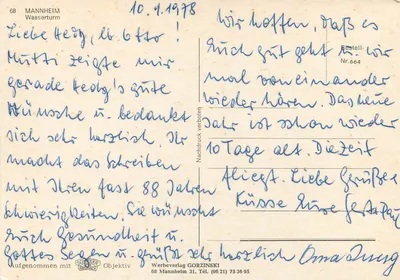 68 MANNHEIM
Wasserturm
10.1.1978
Liebe Hedy, lb. Otto!
Mutti zeigte mir
gerade Hedy's gute
Wünsche u. bedankt
sich sehr herzlich. Ihr
macht das Schreiben
mit Ihren fast 88 Jahren
Schwierigkeiten. Sie wünscht
Euch Gesundheit u.
Gottes Segen u. grüßt sehr herzlich Oma
Aufgenommen mit Objektiv
Nachdruck verboten
Wir hoffen, daß es
Euch gut geht u. wir
mal voneinander
wieder hören. Das neue
Jahr ist schon wieder
10 Tage alt. Die Zeit
fliegt. Liebe Grüße
Küsse Eure Gerta
Bestell-
Nr. 664
Werbeverlag GORZINSKI
68 Mannheim 31, Tel. (06 21) 73 36 05